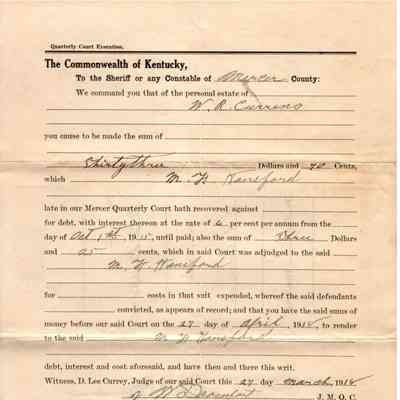 Quarterly Court Execution.
The Commonwealth of Kentucky,
To the Sheriff or any Constable of Mercer County:
We command you that of the personal estate of
W. R. Currens
you cause to be made the sum of
Thirty three Dollars and 90 Cents,
which M. F. Hansford
late in our Mercer Quarterly Court hath recovered against
for debt, with interest thereon at the rate of 6 per cent per annum from the
day of Oct 1st 1915, until paid; also the sum of Three Dollars
and 25 cents, which in said Court was adjudged to the said
M. F. Hansford
for costs in that suit expended, whereof the said defendants
convicted, as appears of record; and that you have the said sums of
money before our said Court on the 27 day of April, 1916, to render
to the said M. F. Hansford
debt, interest and cost aforesaid, and have then and there this writ.
Witness, D. Lee Currey, Judge of our said Court this 27 day march, 1916
J. M. Q. C.